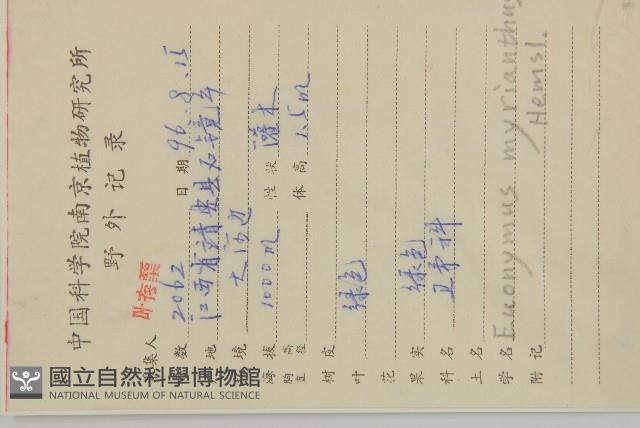 中国科学院南京植物研究所
野外记录
集人 叶存粟
号数 2062 日期 96.8.15
产地 江西省靖安县石镜寺
环境 大沟边
海拔 1000m 性状 灌木
胸高直径 体高 1.5m
树皮
叶 绿色
花
果实 绿色
科名 卫矛科
土名
学名 Euonymus myrianthus Hemsl.
附记
國立自然科學博物館
NATIONAL MUSEUM OF NATURAL SCIENCE